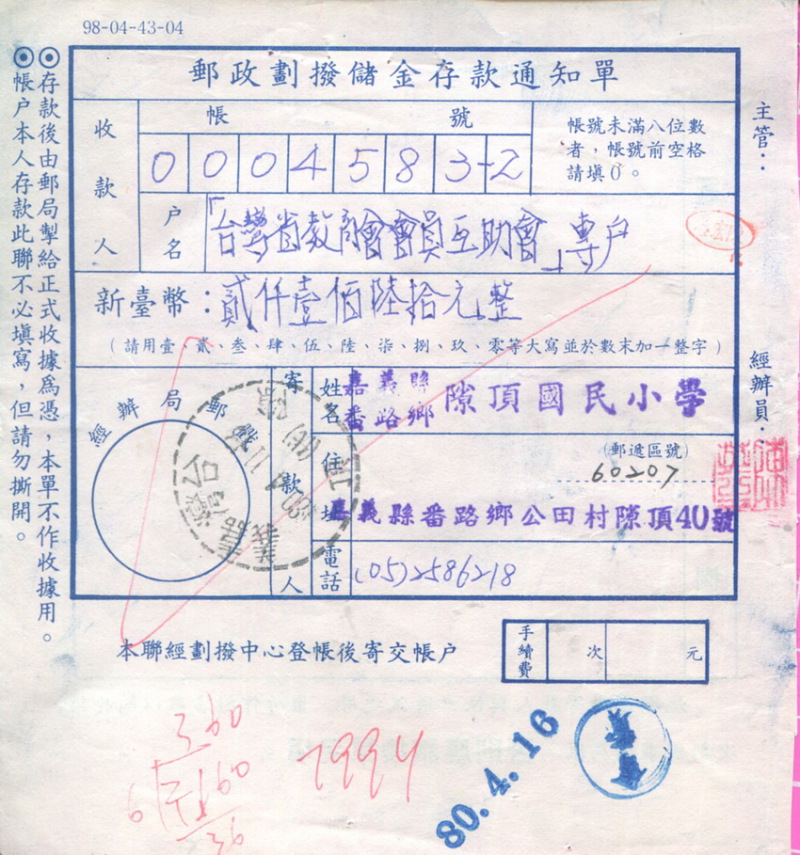 98-04-43-04
郵政劃撥儲金存款通知單
◉存款後由郵局掣給正式收據為憑，本單不作收據用。
◉帳戶本人存款此聯不必填寫，但請勿撕開。
收款人
帳號
0004583-2
帳號未滿八位數
者，帳號前空格
請填0。
戶名
「台灣省教商會會員互助會」專戶
新臺幣：貳仟壹佰陸拾元整
（請用壹、貳、叁、肆、伍、陸、柒、捌、玖、零等大寫並於數末加一整字）
經辦局郵戳
寄款人
姓名
嘉義縣
番路鄉
隙頂國民小學
住址
（郵遞區號）
60207
嘉義縣番路鄉公田村隙頂40號
電話
(05)2586218
主管：
經辦員：
本聯經劃撥中心登帳後寄交帳戶
手續費
次
元
360
6
2160
36
7994
80.4.16